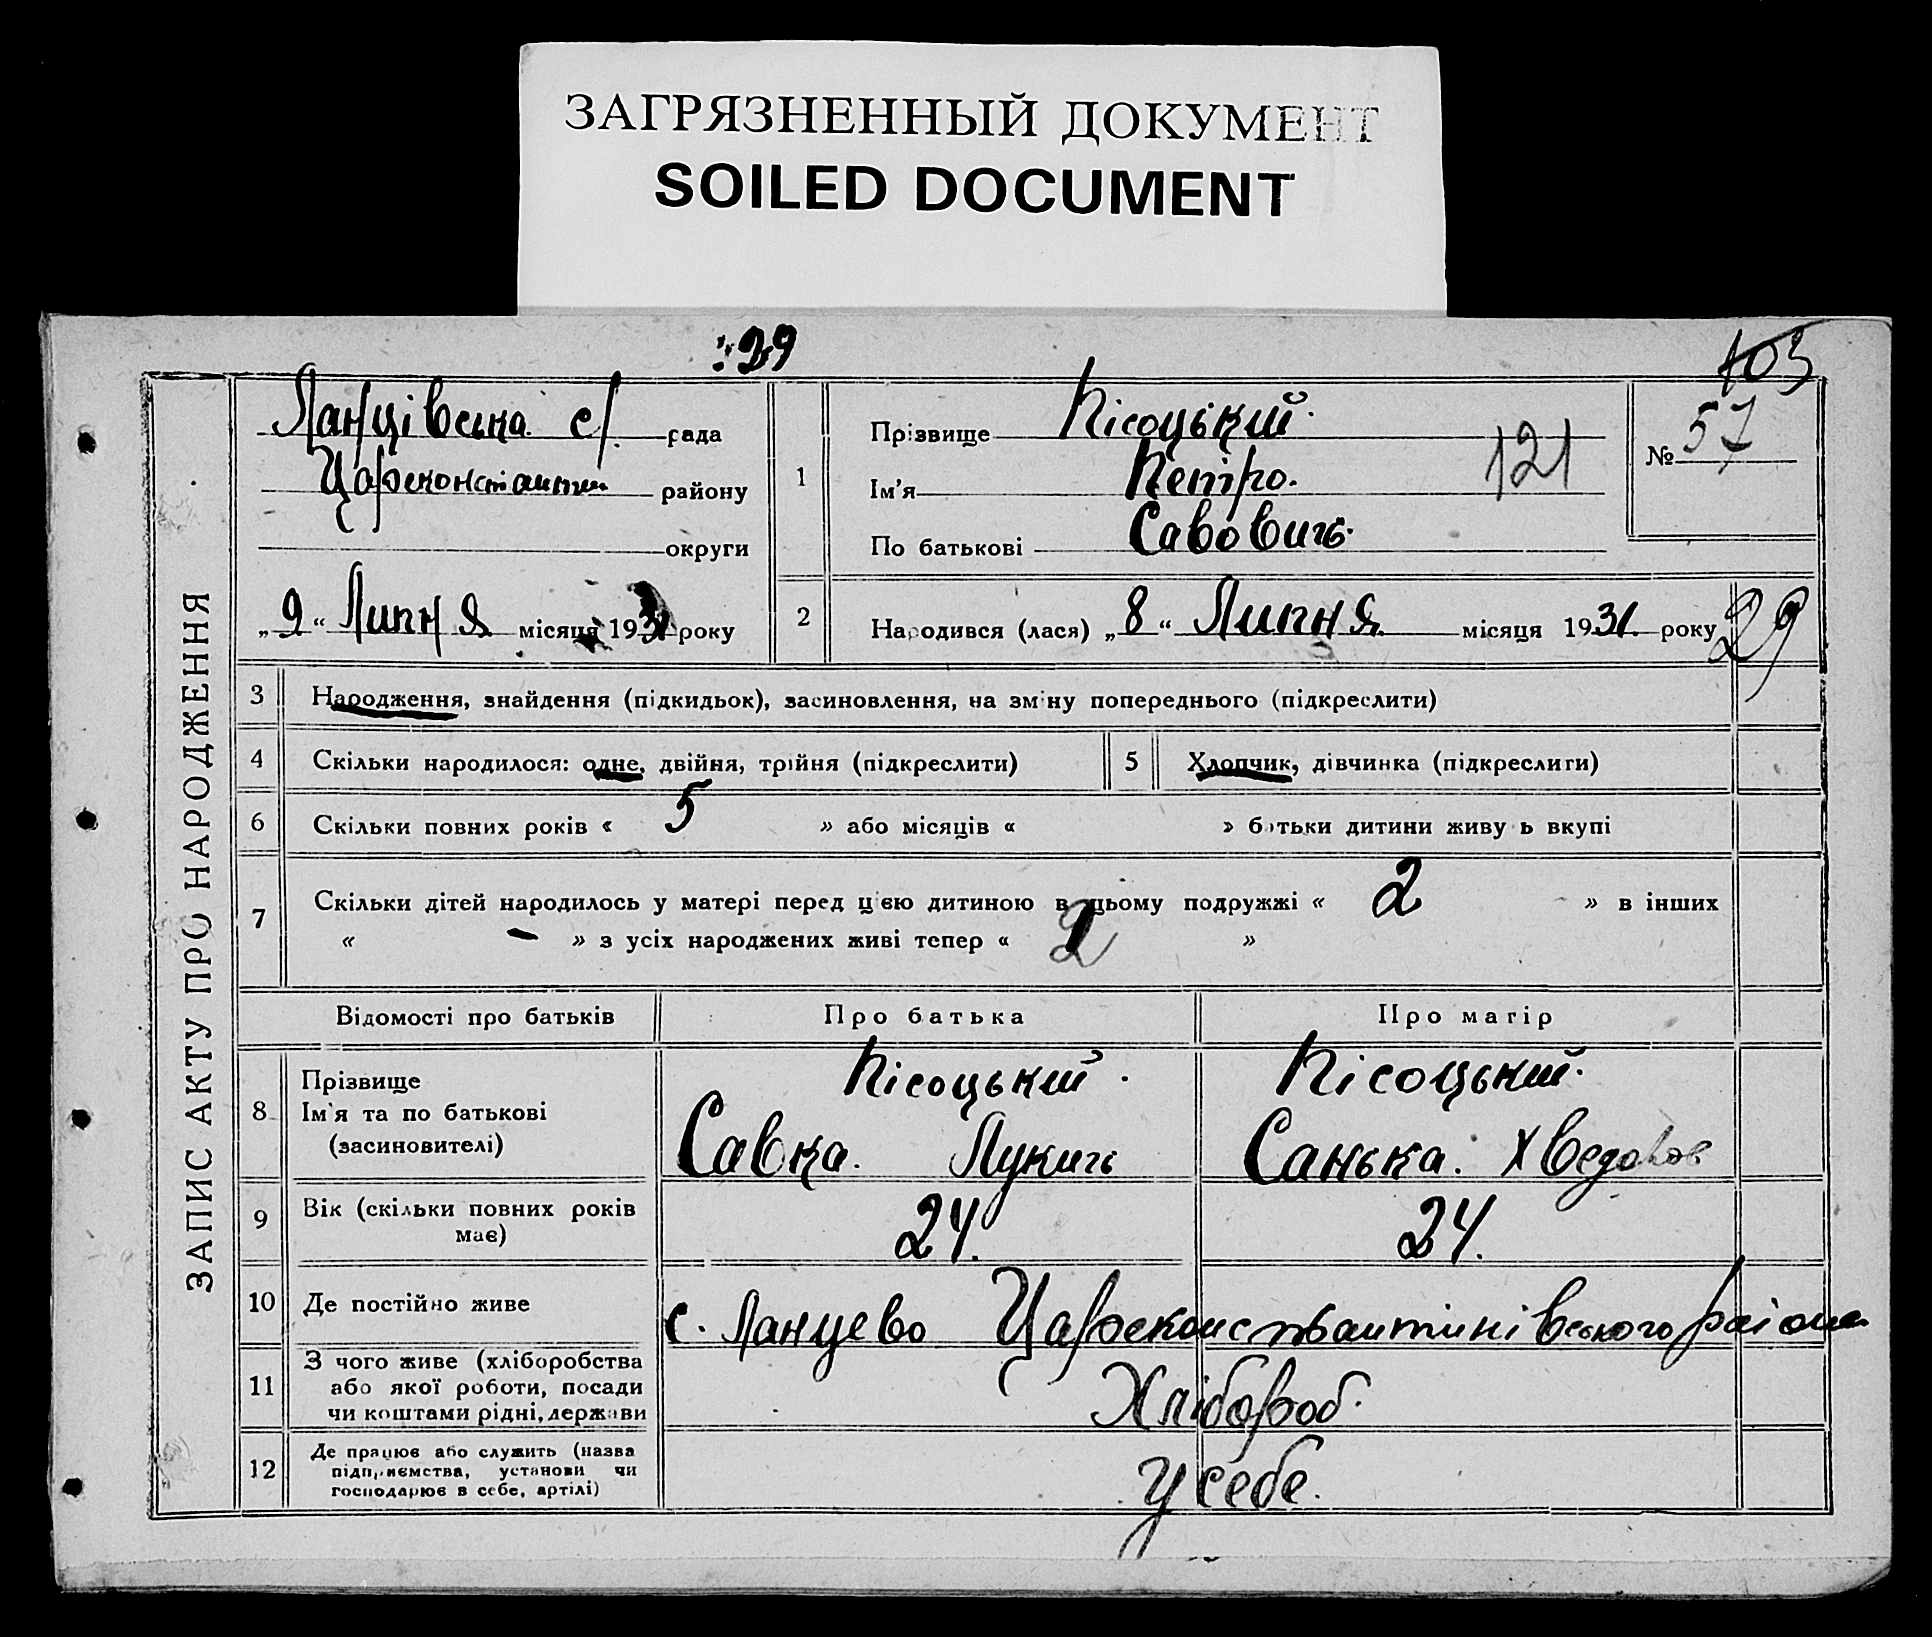 ЗАГРЯЗНЕННЫЙ ДОКУМЕНТ
SOILED DOCUMENT
29
103
ЗАПИС АКТУ ПРО НАРОДЖЕННЯ
Ланцівська с/ рада
Цареконстантин району
округи
„9“ Липня місяця 1931 року
1
Прізвище Пісоцький
Ім'я Петро.
По батькові Савович.
121
№ 57
2
Народився (лася) „8“ Липня місяця 1931. року
29
3 Народження, знайдення (підкидьок), засиновлення, на зміну попереднього (підкреслити)
4 Скільки народилося: одне, двійня, трійня (підкреслити)
5 Хлопчик, дівчинка (підкреслити)
6 Скільки повних років « 5 » або місяців « » батьки дитини живуть вкупі
7 Скільки дітей народилось у матері перед цією дитиною в цьому подружжі « 2 » в інших
« - » з усіх народжених живі тепер « 2 »
Відомості про батьків Про батька Про матір
8 Прізвище
Ім'я та по батькові
(засиновителі)
Пісоцький.
Савка. Лукич
Пісоцький.
Санька. Хведоров
9 Вік (скільки повних років
має)
24.
24.
10 Де постійно живе
с. Ланцево Царeконстантинівського району
11 З чого живе (хліборобства
або якої роботи, посади
чи коштами рідні, держави
Хлібороб.
12 Де працює або служить (назва
підприємства, установи чи
господарює в себе, артілі)
У себе.